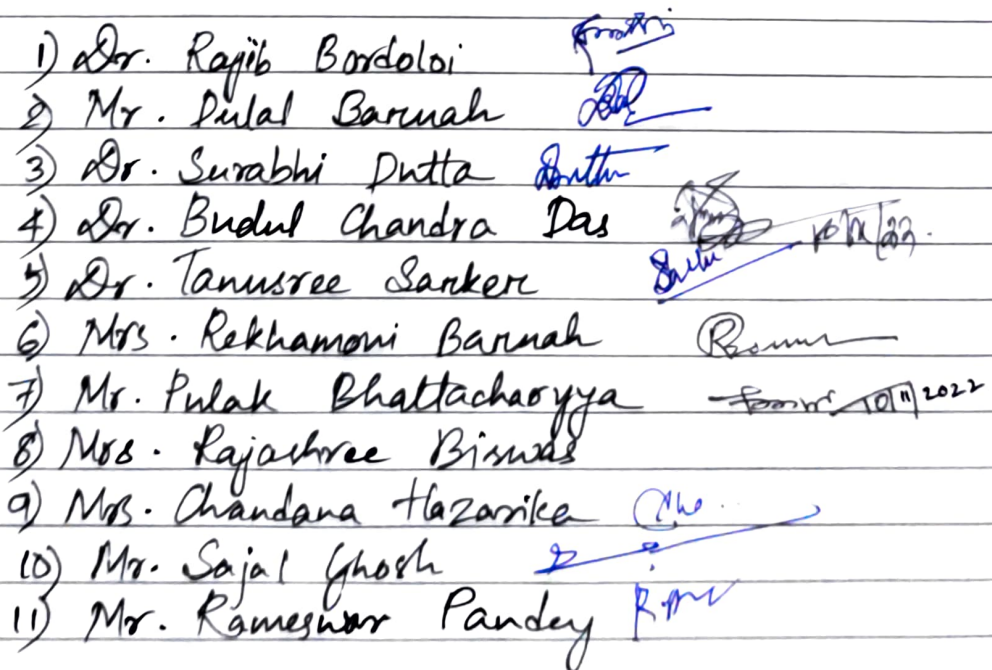 1) Dr. Rajib Bordoloi
2) Mr. Dulal Baruah
3) Dr. Surabhi Dutta
4) Dr. Budul Chandra Das
5) Dr. Tanusree Sarker
6) Mrs. Rekhamoni Baruah
7) Mr. Pulak Bhattacharyya 10/11/2022
8) Mrs. Rajashree Biswas
9) Mrs. Chandana Hazarika
10) Mr. Sajal Ghosh
11) Mr. Rameswar Pandey